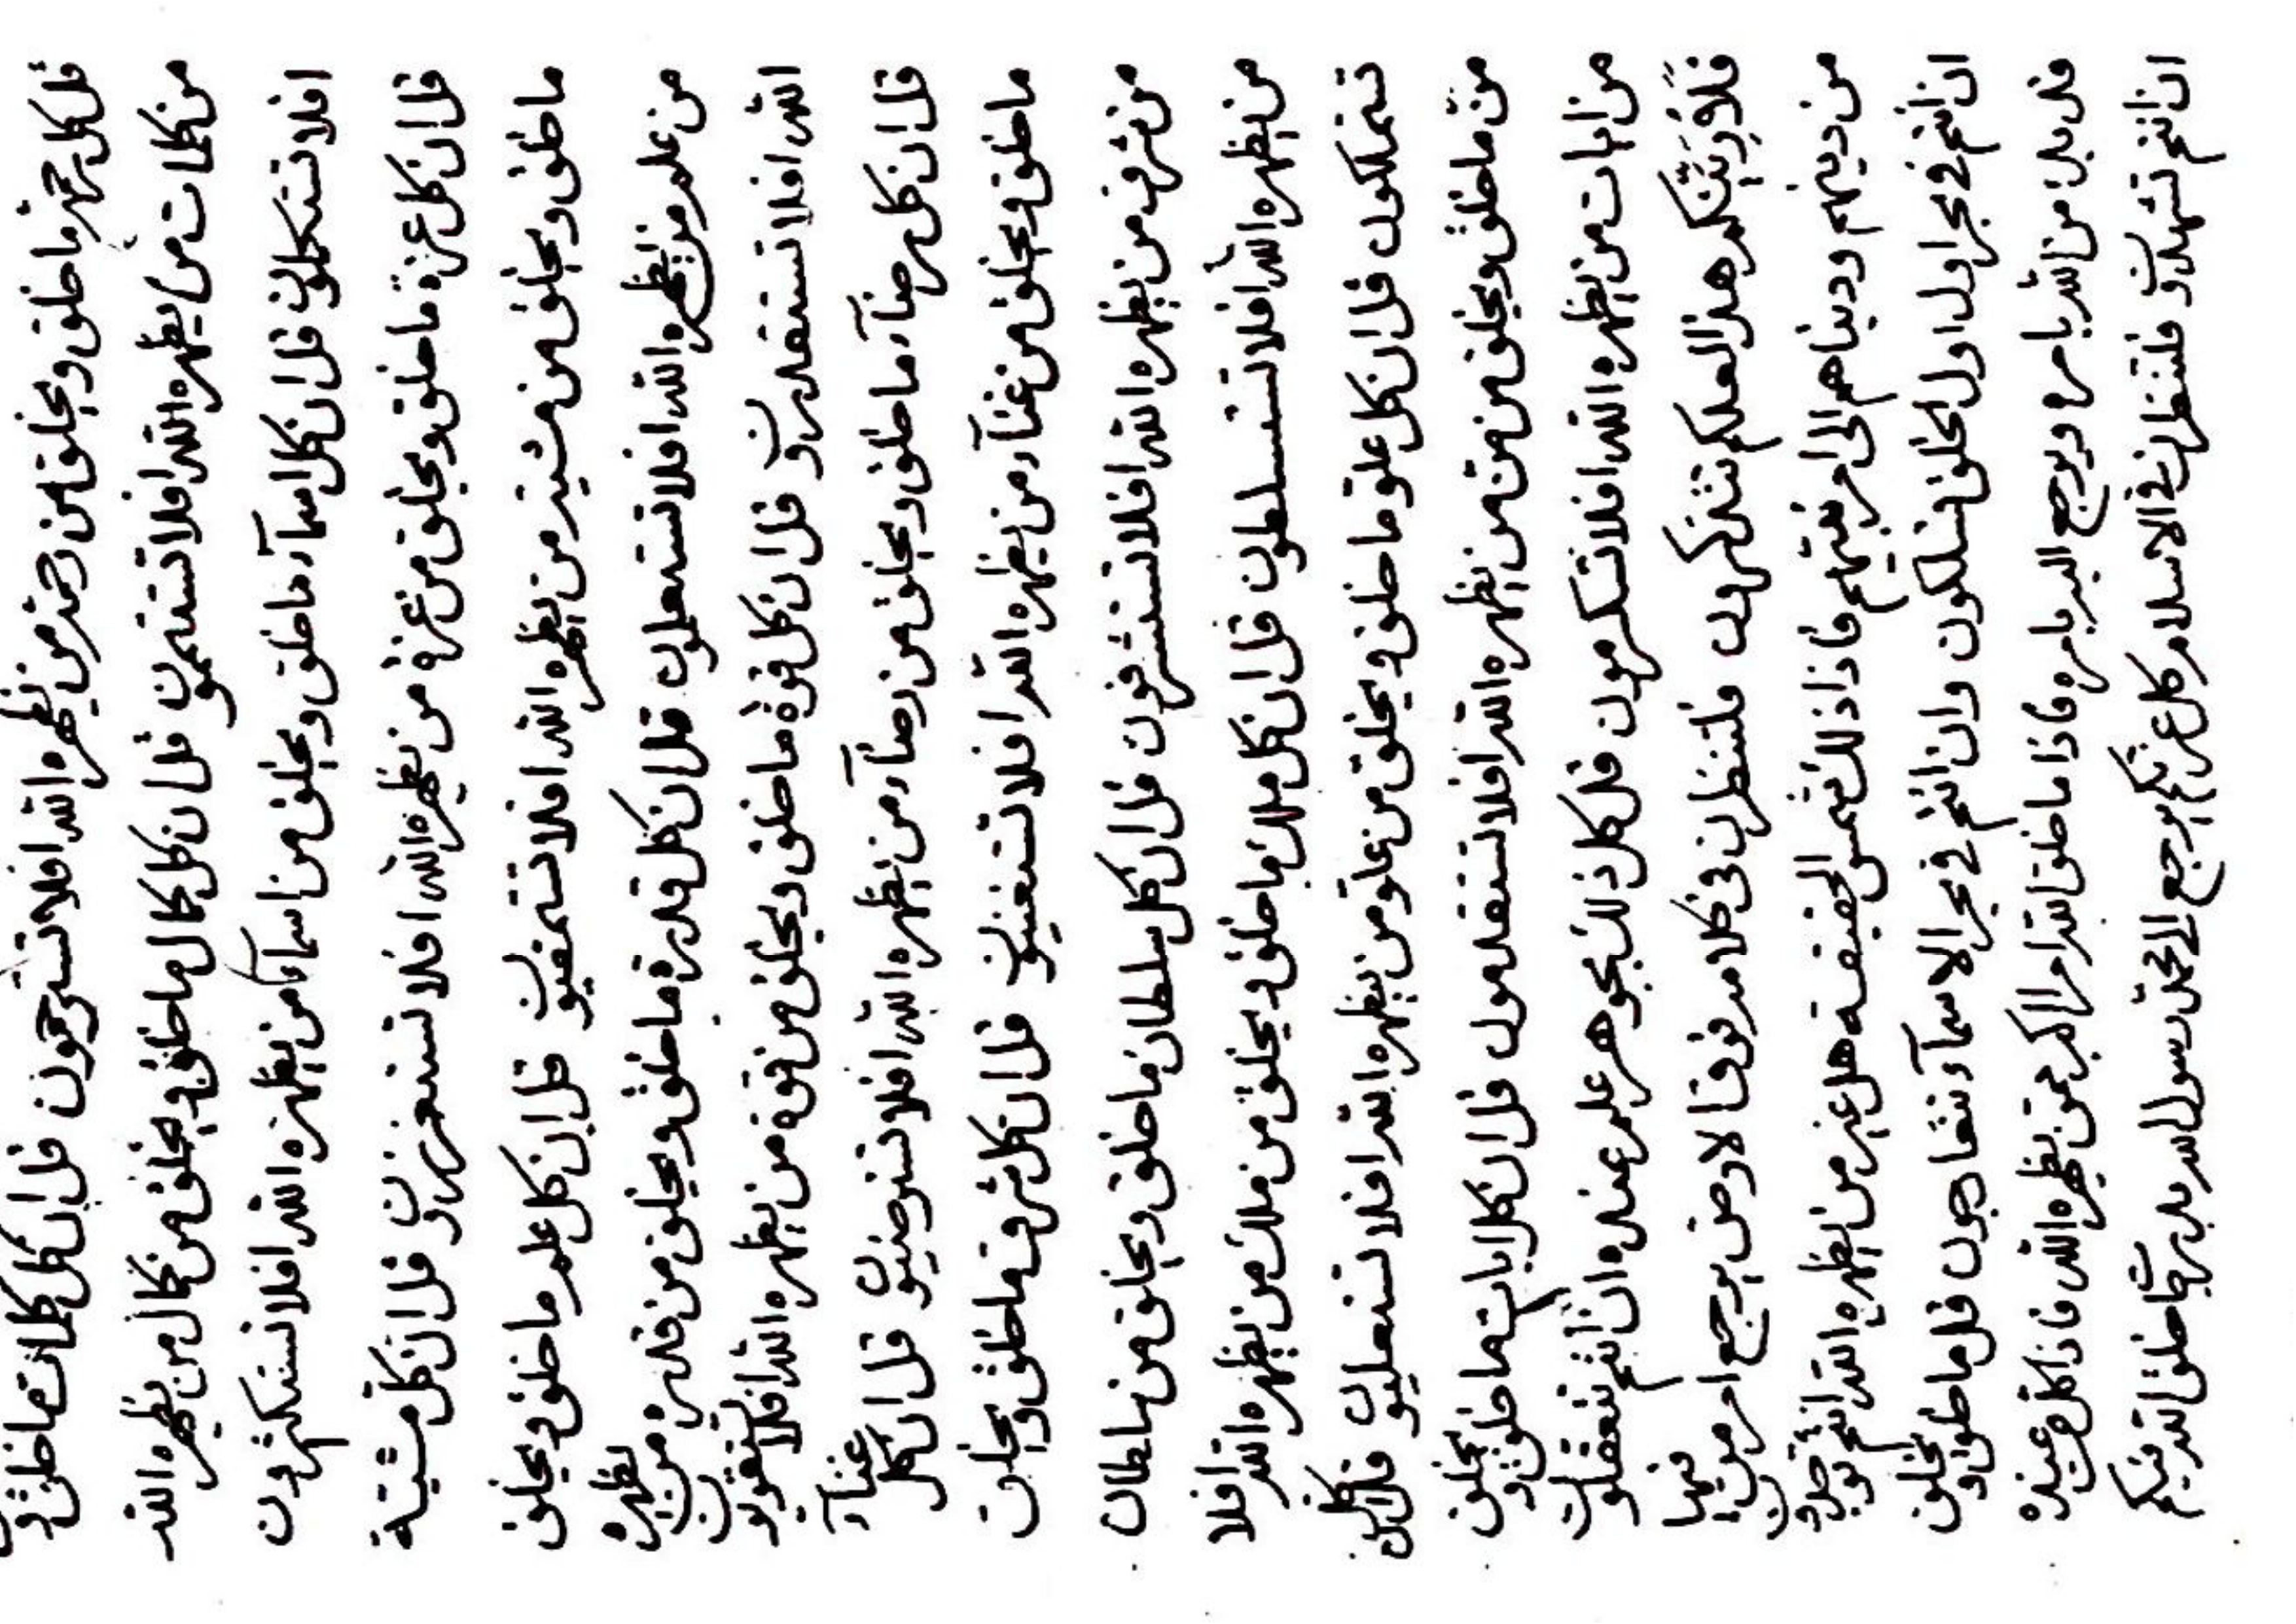 قل كل رحمة ما خلق و يخلق من رحمة من يظهره الله افلا تسترحمون قل ان كل كلمات ما خلق و
من كلمات من يظهره الله افلا تستتمون قل ان كل كمال ما خلق و يخلق من كمال من يظهره الله
افلا تستكملون قل ان كل اسمآء ما خلق و يخلق من اسمآء من يظهره الله افلا تستكثرون
قل ان كل عزة ما خلق و يخلق من عزة من يظهره الله افلا تستعززون قل ان كل مشية
ما خلق و يخلق من مشية من يظهره الله افلا قل ان كل علم ما خلق و يخلق
من علم من يظهره الله افلا تستعلمون قل ان كل قدرة ما خلق و يخلق من قدرة من يظهره
الله افلا تستقدرون قل ان كل قوة ما خلق و يخلق من قوة من يظهره الله افلا تستقويون
قل ان كل رضآء ما خلق و يخلق من رضآء من يظهره الله افلا تسترضيون قل ان كل غنآء
ما خلق و يخلق من غنآء من يظهره الله افلا تستغنيون قل ان كل شرف ما خلق و يخلق
من شرف من يظهره الله افلا تستشرفون قل ان كل سلطان ما خلق و يخلق من سلطان
من يظهره الله افلا تستسلطون قل ان كل ملك ما خلق و يخلق من ملك من يظهره الله افلا
تتملكون قل ان كل علو ما خلق و يخلق من علو من يظهره الله افلا تستعليون قل ان كل
من ما خلق و يخلق من من من يظهره الله افلا تستقدمون قل ان كل ايات ما خلق و يخلق
من ايات من يظهره الله افلا قل كل ذلك بجوهر علم عنده ان انتم تتعقلون
هذا لعلكم تتذكرون فلتنظرن فى كلام فوق الارض يرجع امر من فيها
من دينهم و دنياهم الى امر نقيهم فاذا ذلك شمس الحقيقة هل غير من يظهره الله انتم توجدون
ان انتم في بحر اول اول الخلق تسلكون و ان انتم في بحر الاسمآء تتعارجون قل ما خلق و يخلق
قل بدء من الله بامره و يرجع اليه بامره فاذا ما خلق الله امرا اكبر عمن يظهره الله فاذا كل عنده
ان انتم تشهدون فلتنظرن في الاسلام كل عزتكم يرجع الى محمد رسول الله بدء ما خلق الله فيكم